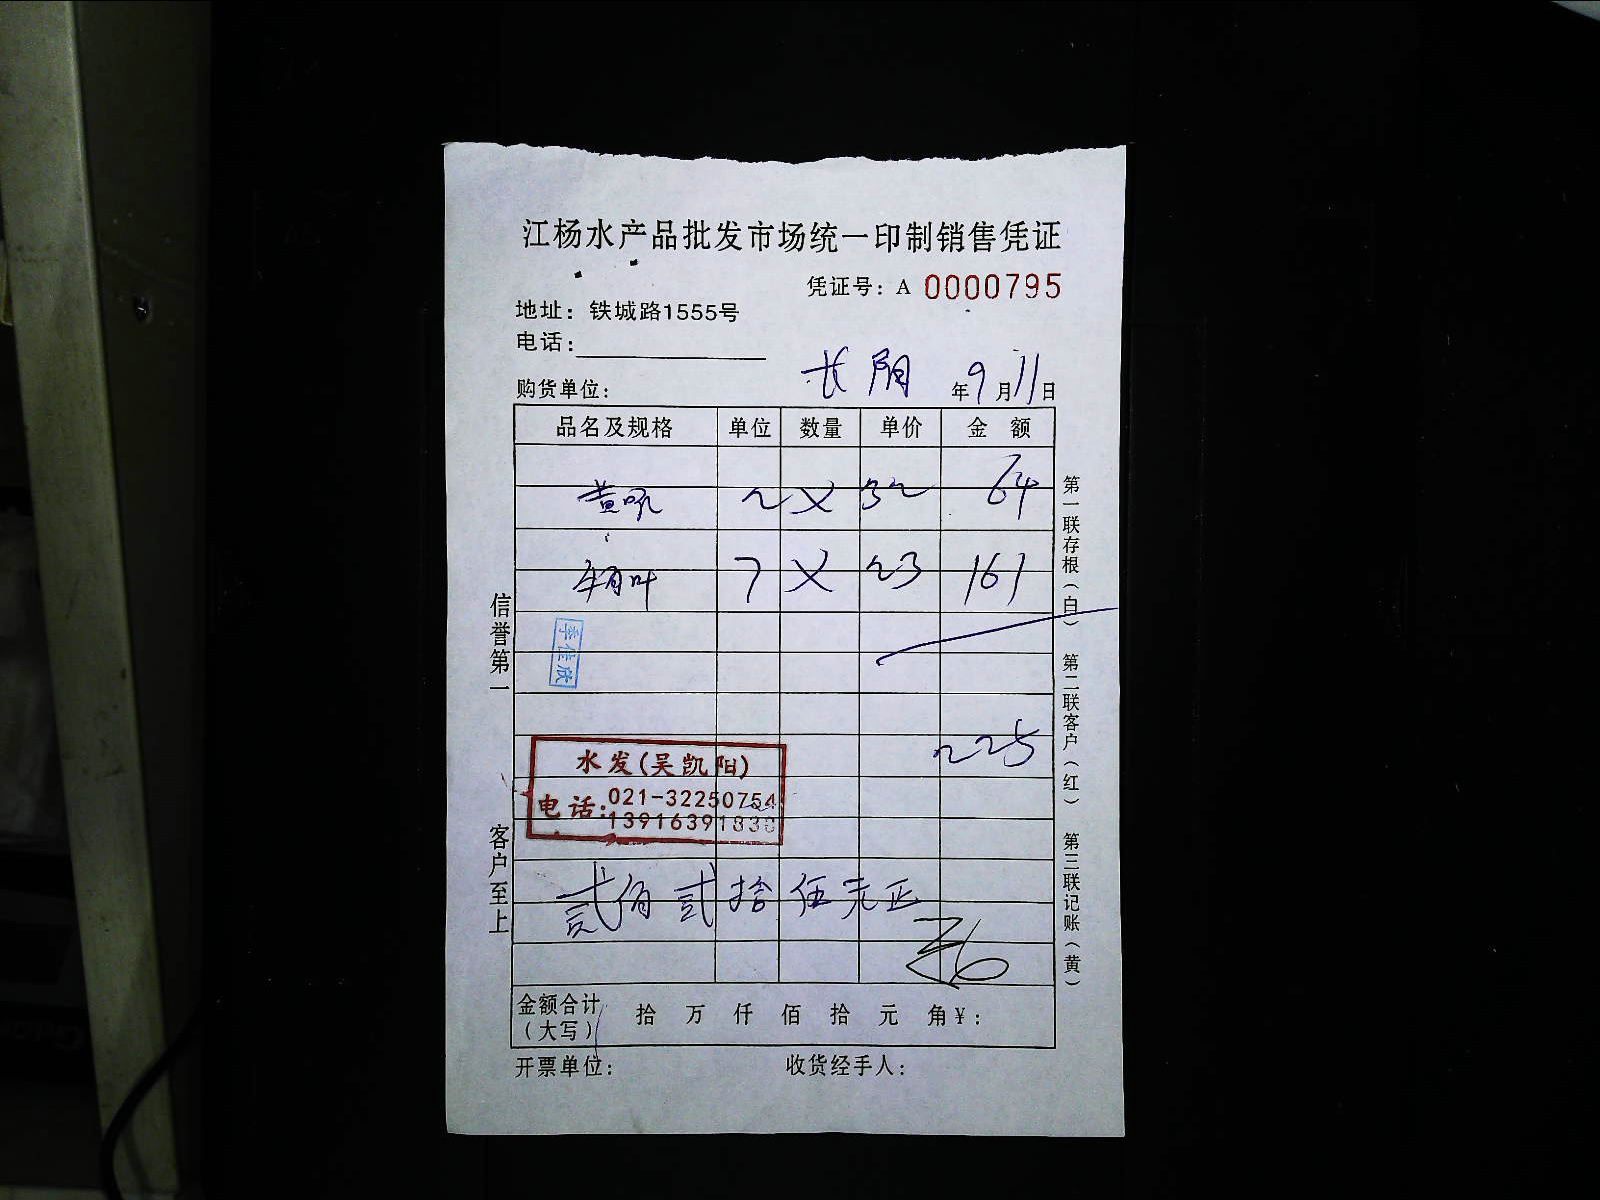 江杨水产品批发市场统一印制销售凭证
凭证号：A 0000795
地址：铁城路1555号
电话：
长阴
购货单位： 年9月11日
品名及规格 单位 数量 单价 金额
黄 2 × 32 64
7 × 23 161
李佳欣
225
水发(吴凯阳)
电话：021-32250754
1391639183
贰佰贰拾伍元正
金额合计（大写） 拾 万 仟 佰 拾 元 角 ¥：
开票单位： 收货经手人：
信誉第一
客户至上
第一联存根（白） 第二联客户（红） 第三联记账（黄）